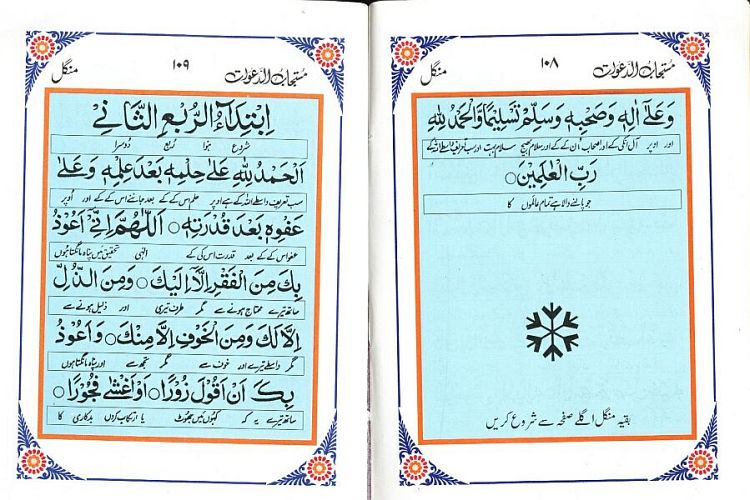 مستجاب الدعوات ۱۰۸ منگل
وَعَلٰٓى اٰلِهٖ وَصَحْبِهٖ وَسَلِّمْ تَسْلِيْمًا وَّالْحَمْدُ لِلّٰهِ
اور اوپر آل انکی کے اور اصحاب ان کے کے اور سلام بھیج سلام بہت اور سب تعریف واسطے اللہ کے
رَبِّ الْعٰلَمِيْنَ○
جو پالنے والا ہے تمام عالموں کا
بقیہ منگل اگلے صفحہ سے شروع کریں
مستجاب الدعوات ۱۰۹ منگل
اِبْتِدَاءُ الرُّبْعِ الثَّانِيْ
شروع ہوا ربع دوسرا
اَلْحَمْدُ لِلّٰهِ عَلٰى حِلْمِهٖ بَعْدَ عِلْمِهٖ وَعَلٰى
سب تعریف واسطے اللہ کے ہے اوپر حلم اس کے کے بعد جاننے اس کے کے اور اوپر
عَفْوِهٖ بَعْدَ قُدْرَتِهٖ○ اَللّٰهُمَّ اِنِّيْٓ اَعُوْذُ
عفو اس کے کے بعد قدرت اس کی کے الٰہی تحقیق میں پناہ مانگتا ہوں
بِكَ مِنَ الْفَقْرِ اِلَّآ اِلَيْكَ○ وَمِنَ الذُّلِّ
ساتھ تیرے محتاج ہونے سے مگر طرف تیری اور ذلیل ہونے سے
اِلَّا لَكَ وَمِنَ الْخَوْفِ اِلَّا مِنْكَ○ وَاَعُوْذُ
مگر واسطے تیرے اور خوف سے مگر تجھ سے اور پناہ مانگتا ہوں
بِكَ اَنْ اَقُوْلَ زُوْرًا○ اَوْ اَغْشٰى فُجُوْرًا○
ساتھ تیرے یہ کہ کہوں میں جھوٹ یا ارتکاب کروں بدکاری کا